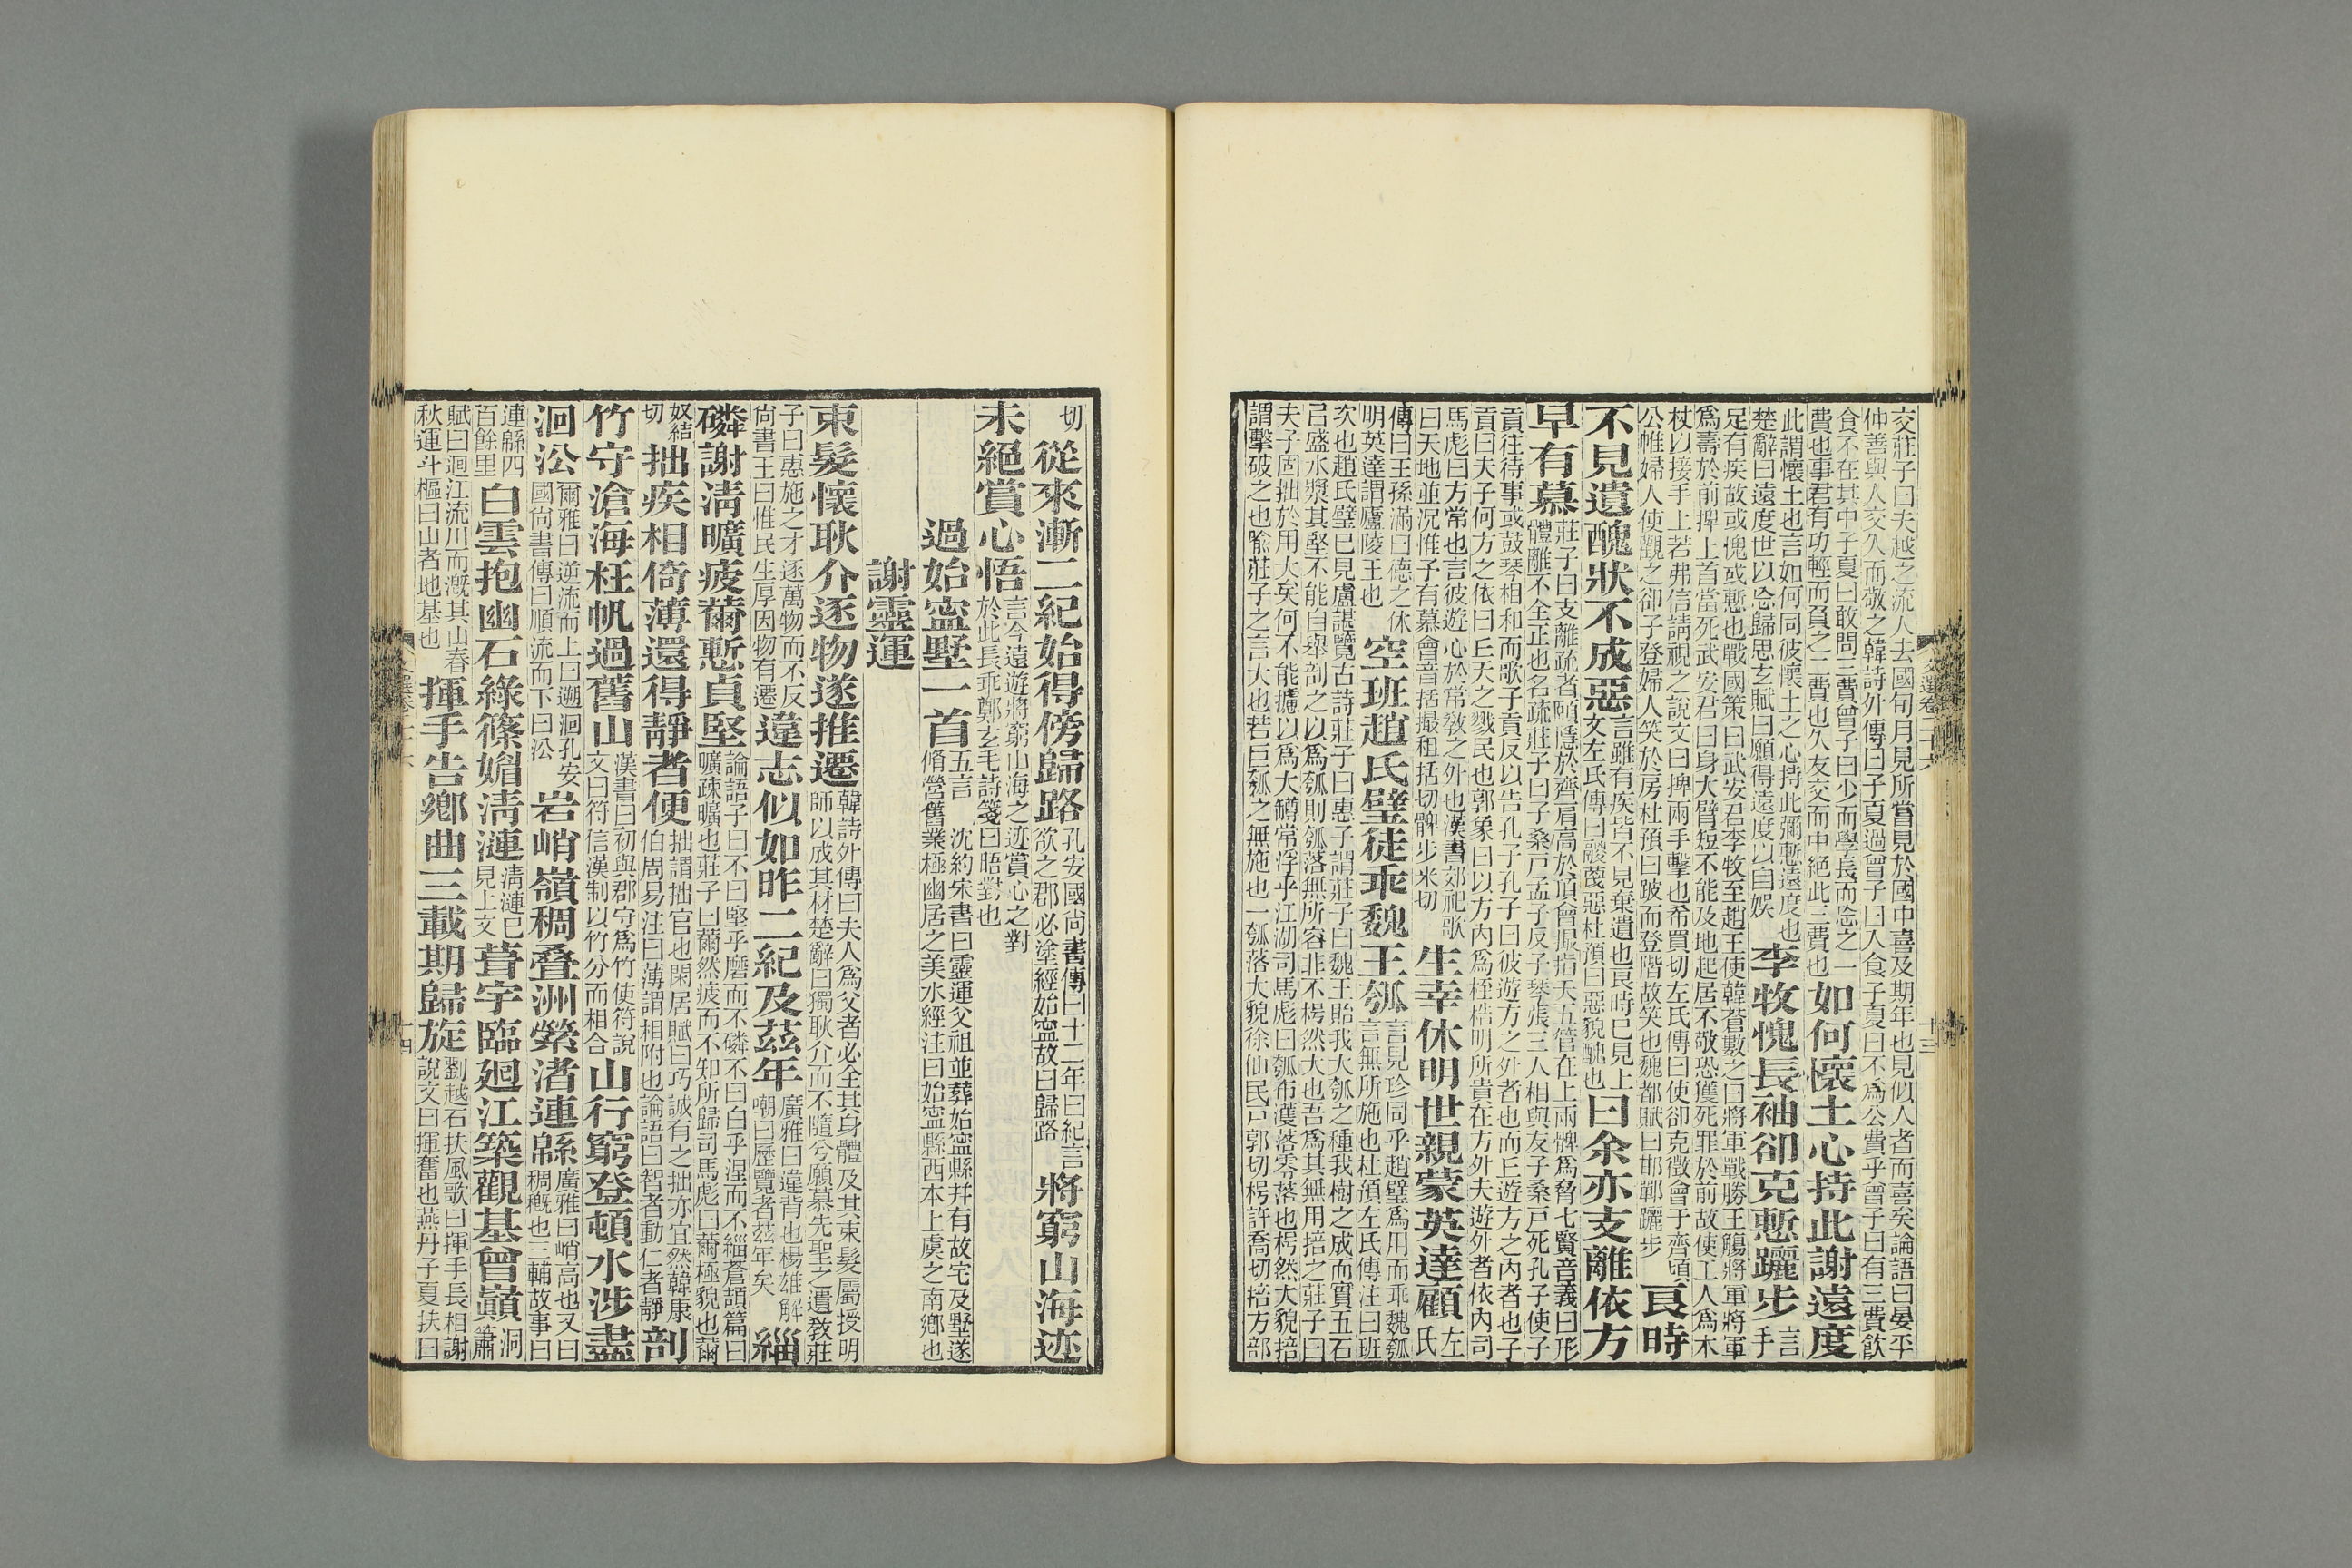 交莊子曰夫越之流人去國旬月見所嘗見於國中喜及期年也見似人者而喜矣論語曰晏平
仲善與人交久而敬之韓詩外傳曰子夏過曾子曰入食子夏曰不爲公費乎曾子曰有三費飲
食不在其中子夏曰敢問三費曾子曰少而學長而忘之一
費也事君有功輕而負之二費也久友交而中絕此三費也
如何懷土心持此謝遠度
此謂懷土也言如何同彼懷土之心持此彌慙遠度也
楚辭曰遠度世以忘歸思玄賦曰願得遠度以自娛
李牧愧長袖卻克慙躧步
言
手
足有疾故或愧或慙也戰國策曰武安君李牧至趙王使韓蒼數之曰將軍戰勝王觴將軍將軍
爲壽於前捭上首當死武安君曰身大臂短不能及地起居不敬恐獲死罪於前故使工人爲木
杖以接手上若弗信請視之說文曰捭兩手擊也希買切左氏傳曰使卻克徵會于齊頃
公帷婦人使觀之卻子登婦人笑於房杜預曰跛而登階故笑也魏都賦曰邯鄲躧步
良時
不見遺醜狀不成惡
言雖有疾皆不見棄遺也良時已見上
文左氏傳曰鬷蔑惡杜預曰惡貌醜也
曰余亦支離依方
早有慕
莊子曰支離疏者頤隱於齊肩高於頂會撮指天五管在上兩髀爲脅七賢音義曰形
體離不全正也名疏莊子曰子桑戶孟子反子琴張三人相與友子桑戶死孔子使子
貢往待事或鼓琴相和而歌子貢反以告孔子孔子曰彼遊方之外者也而丘遊方之內者也子
貢曰夫子何方之依曰丘天之戮民也郭象曰以方內爲桎梏明所貴在方外夫遊外者依內司
馬彪曰方常也言彼遊心於常教之外也漢書郊祀歌
曰天地並況惟予有慕會音括撮租括切髀步米切
生幸休明世親蒙英達顧
左
氏
傳曰王孫滿曰德之休
明英達謂廬陵王也
空班趙氏璧徒乖魏王瓠
言見珍同乎趙璧爲用而乖魏瓠
言無所施也杜預左氏傳注曰班
次也趙氏璧已見盧諶覽古詩莊子曰惠子謂莊子曰魏王貽我大瓠之種我樹之成而實五石
㠯盛水漿其堅不能自舉剖之以爲瓠則瓠落無所容非不枵然大也吾爲其無用掊之莊子曰
夫子固拙於用大矣何不能攄以爲大罇常浮乎江湖司馬彪曰瓠布濩落零落也枵然大貌掊
謂擊破之也喻莊子之言大也若巨瓠之無施也一瓠落大貌徐仙民戶郭切枵許喬切掊方部
切
從來漸二紀始得傍歸路
孔安國尚書傳曰十二年曰紀言
欲之郡必塗經始寧故曰歸路
將窮山海迹
未絕賞心悟
言今遠遊將窮山海之迹賞心之對
於此長乖鄭玄毛詩箋曰晤對也
過始寧墅一首
五言 沈約宋書曰靈運父祖並葬始寧縣幷有故宅及墅遂
脩營舊業極幽居之美水經注曰始寧縣西本上虞之南鄉也
謝靈運
束髮懷耿介逐物遂推遷
韓詩外傳曰夫人爲父者必全其身體及其束髮屬授明
師以成其材楚辭曰獨耿介而不隨兮願慕先聖之遺教莊
子曰惠施之才逐萬物而不反
尚書王曰惟民生厚因物有遷
違志似如昨二紀及茲年
廣雅曰違背也楊雄解
嘲曰歷覽者茲年矣
緇
磷謝清曠疲薾慙貞堅
論語子曰不曰堅乎磨而不磷不曰白乎涅而不緇蒼頡篇曰
曠疎曠也莊子曰薾然疲而不知所歸司馬彪曰薾極貌也薾
奴結
切
拙疾相倚薄還得靜者便
拙謂拙官也閑居賦曰巧誠有之拙亦宜然韓康
伯周易注曰薄謂相附也論語曰智者動仁者靜
剖
竹守滄海枉帆過舊山
漢書曰初與郡守爲竹使符說
文曰符信漢制以竹分而相合
山行窮登頓水涉盡
洄沿
爾雅曰逆流而上曰遡洄孔安
國尚書傳曰順流而下曰沿
岩峭嶺稠疊洲縈渚連緜
廣雅曰峭高也又曰
稠穊也三輔故事曰
連緜四
百餘里
白雲抱幽石綠篠媚清漣
清漣已
見上文
葺宇臨廻江築觀基曾巔
洞
簫
賦曰迴江流川而溉其山春
秋運斗樞曰山者地基也
揮手告鄉曲三載期歸旋
劉越石扶風歌曰揮手長相謝
說文曰揮奮也燕丹子夏扶曰